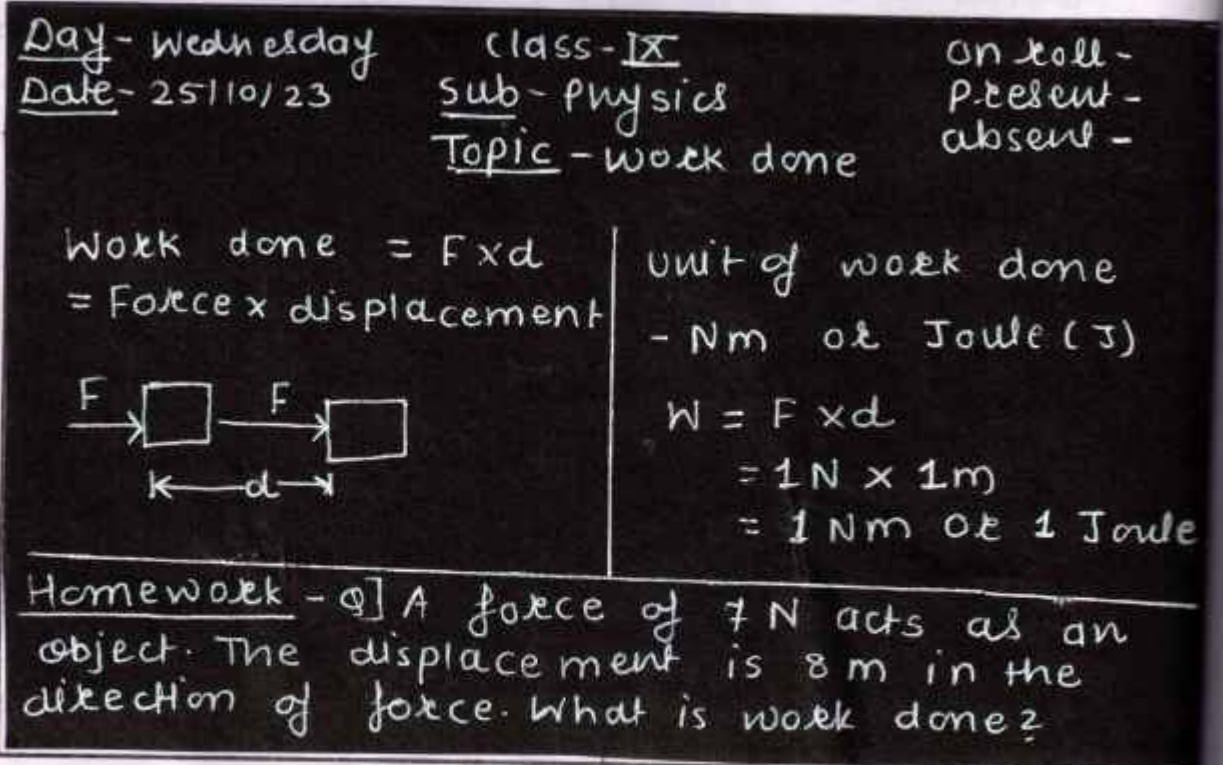 Day - Wednesday
Date - 25/10/23
Class - IX
Sub - Physics
Topic - Work done
on roll -
Present -
absent -
Work done = F x d
= Force x displacement
F F
d
unit of work done
- Nm or Joule (J)
W = F x d
= 1 N x 1m
= 1 Nm or 1 Joule
Homework - Q] A force of 7 N acts as an
object. The displacement is 8 m in the
direction of force. What is work done?